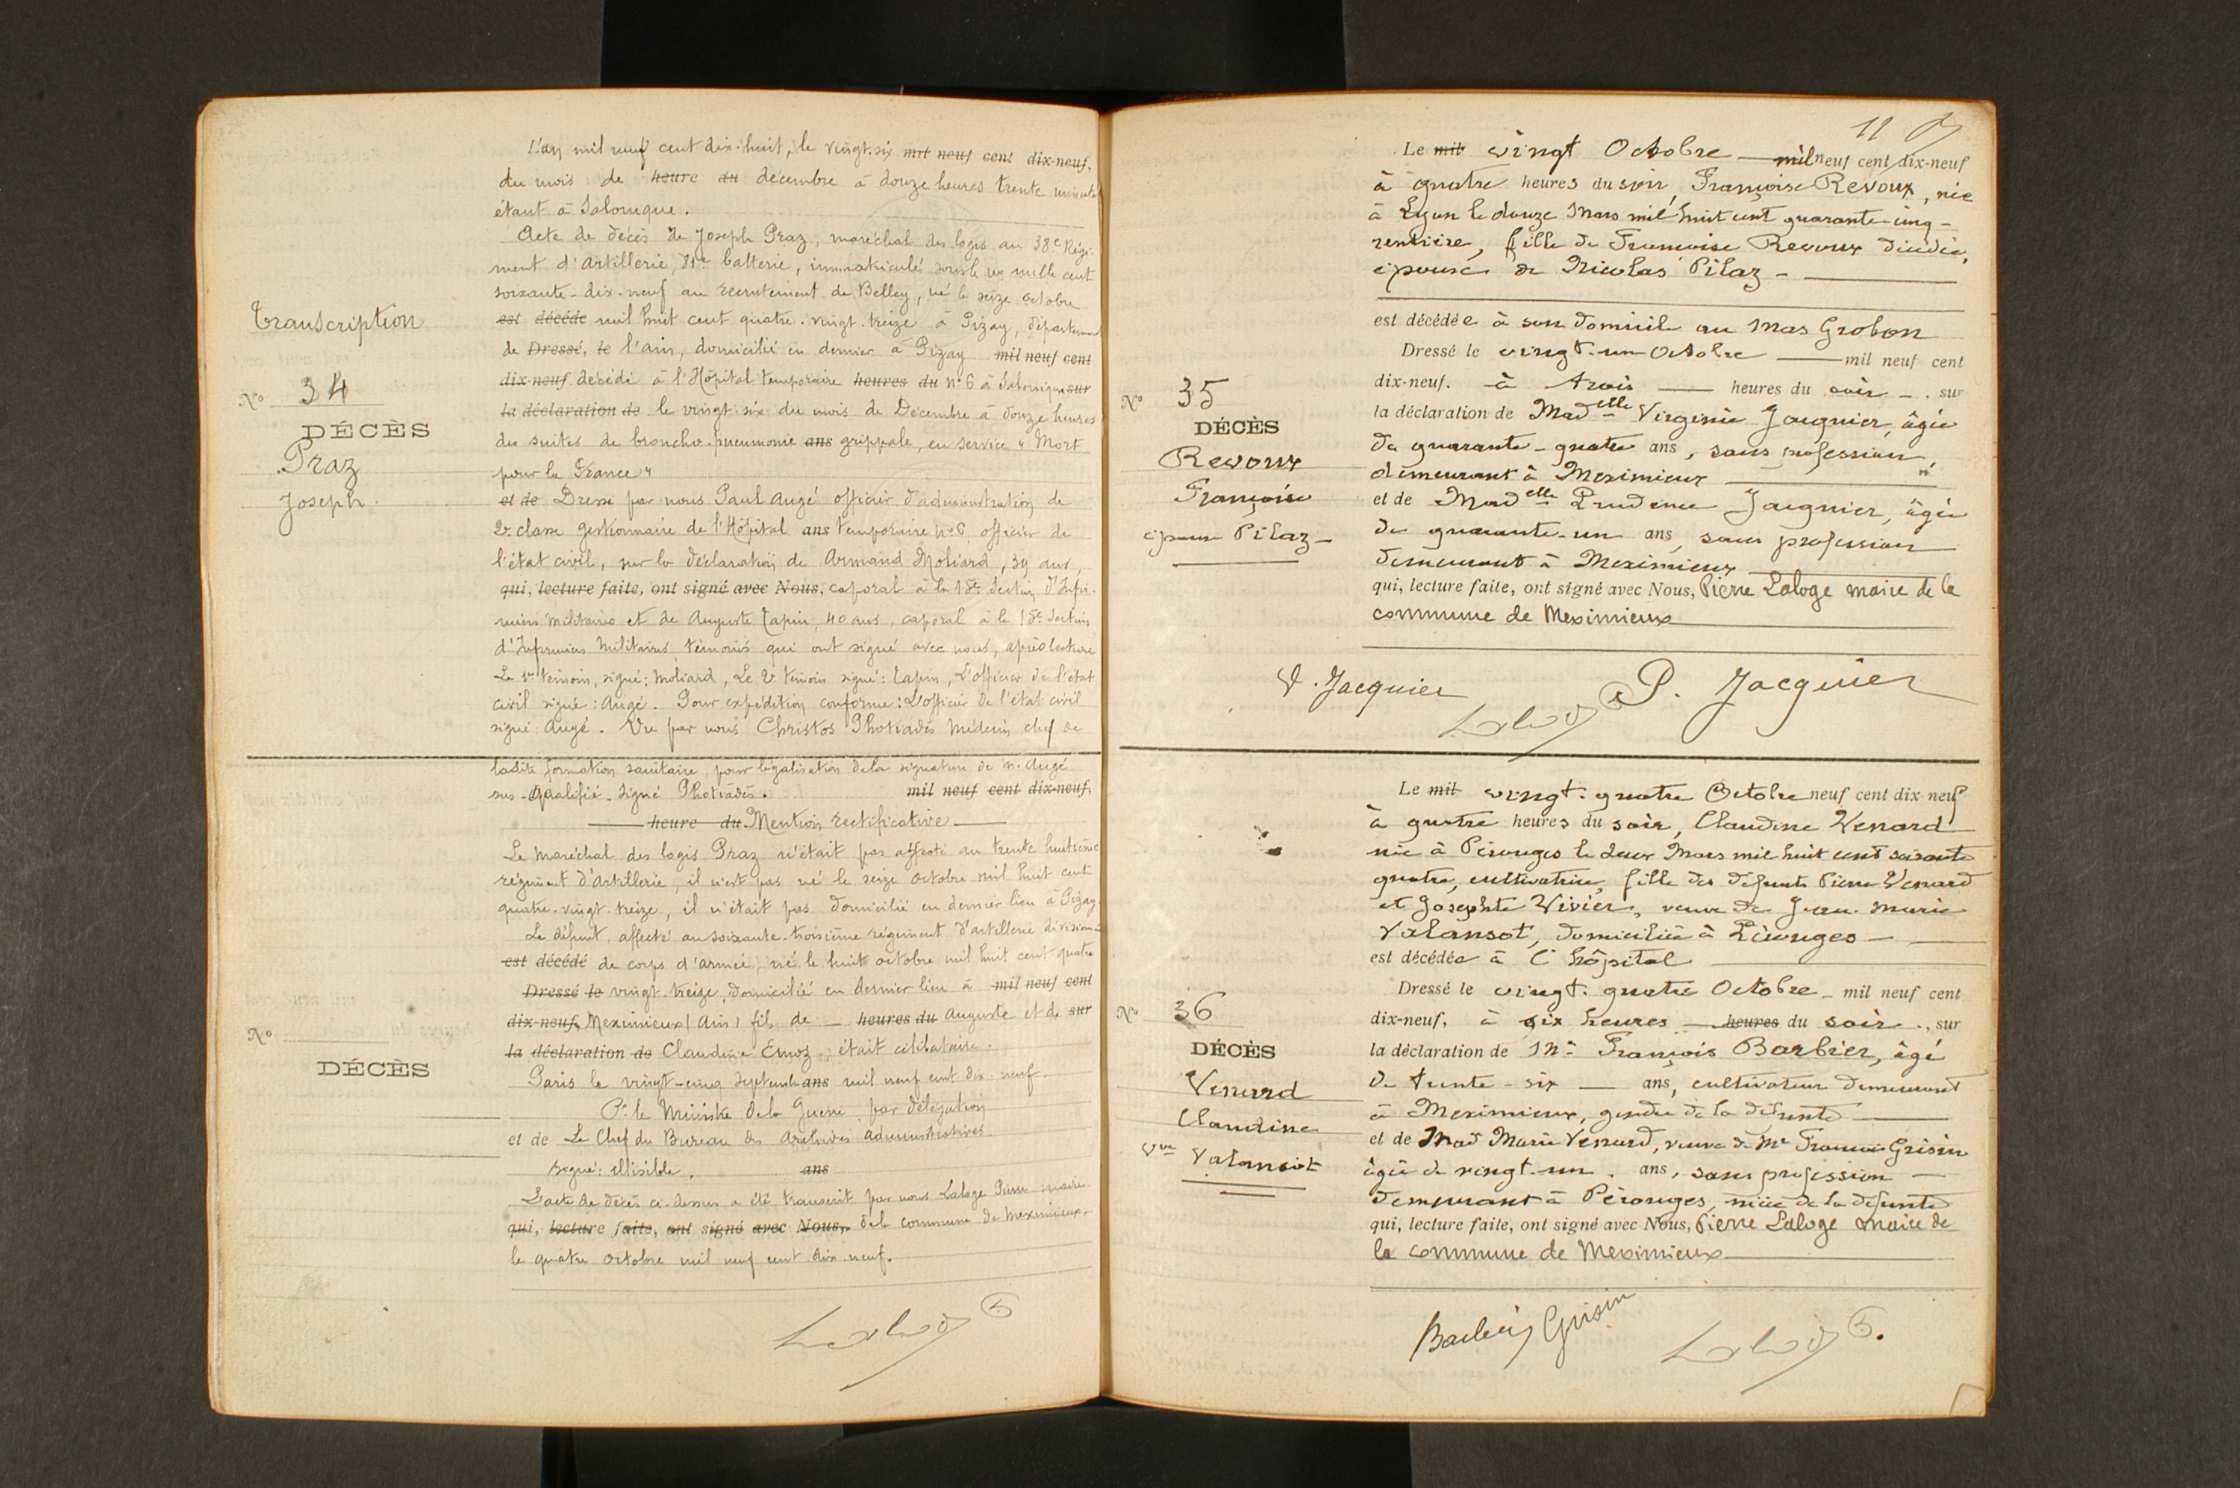 L'an mil neuf cent dix-huit, le vingt-six mil neuf cent dix-neuf.
du mois de heure du décembre à douze heures trente minutes
étant à Salonique.
Acte de décès de Joseph Praz, maréchal des logis au 38e Régi-
ment d'Artillerie, 71e batterie, immatriculé sous le no mille cent
soixante-dix-neuf au recrutement de Belley, né le seize octobre
Transcription
est décédé mil huit cent quatre-vingt-treize à Pizay, département
de Dressé, le l'ain, domicilié en dernier à Pizay mil neuf cent
dix-neuf décédé à l'Hôpital temporaire heures du no 6 à Salonique sur
No 34
la déclaration de le vingt-six du mois de Décembre à douze heures
DÉCÈS
des suites de broncho-pneumonie ans grippale, en service "Mort
Praz
pour la France"
Joseph
et de Dressé par nous Paul Augé officier d'administration de
2e classe gestionnaire de l'Hôpital ans temporaire no 6, officier de
l'état civil, sur la déclaration de Armand Moliard, 39 ans,
qui, lecture faite, ont signé avec Nous, caporal à la 15e Section d'Infir-
miers Militaires et de Auguste Lapin, 40 ans, caporal à la 15e Section
d'Infirmiers Militaires, témoins qui ont signé avec nous, après lecture
Le 1er témoin, signé: Moliard, Le 2e témoin signé: Lapin, L'officier de l'état
civil signé: Augé. Pour expédition conforme: L'officier de l'état civil
signé Augé. Vu par nous Christos Photiadès Médecin chef de
ladite formation sanitaire, pour légalisation de la signature de M. Augé
sus-qualifié. Signé Photiadès. mil neuf cent dix-neuf,
heure du Mention rectificative
Le maréchal des logis Praz n'était pas affecté au trente huitième
régiment d'artillerie, il n'est pas né le seize octobre mil huit cent
quatre-vingt-treize, il n'était pas domicilié en dernier lieu à Pizay
Le défunt, affecté au soixante-troisième régiment d'artillerie division
est décédé de corps d'armée, né le huit octobre mil huit cent quatre
Dressé le vingt-treize, domicilié en dernier lieu à mil neuf cent
dix-neuf, Meximieux (Ain) fils de heures du Auguste et de sur
No
la déclaration de Claudine Emoz, était célibataire.
DÉCÈS
Paris le vingt-cinq septembre ans mil neuf cent dix-neuf
Pr le Ministre de la Guerre, par délégation
et de Le Chef du Bureau des Archives administratives
signé: illisible. ans
L'acte de décès ci-dessus a été transcrit par nous Laloge Pierre maire
qui, lecture faite, ont signé avec Nous, de la commune de Meximieux.
le quatre octobre mil neuf cent dix-neuf.
11
Le mil vingt Octobre mil neuf cent dix-neuf
à quatre heures du soir, Françoise Revoux, née
à Lyon le douze Mars mil huit cent quarante-cinq-
rentière, fille de Françoise Revoux décédée,
épouse de Nicolas Pilaz-
est décédée à son domicile au Mas Grobon
Dressé le vingt-un Octobre mil neuf cent
dix-neuf. à trois heures du soir. sur
No 35
la déclaration de Madelle Virginie Jacquier, âgée
DÉCÈS
de quarante-quatre ans, sans profession,
Revoux
demeurant à Meximieux
Françoise
et de Madelle Prudence Jacquier, âgée
épouse Pilaz-
de quarante-un ans, sans profession
demeurant à Meximieux
qui, lecture faite, ont signé avec Nous, Pierre Laloge maire de la
commune de Meximieux
V. Jacquier
P. Jacquier
Le mil vingt-quatre Octobre neuf cent dix neuf
à quatre heures du soir, Claudine Venard
née à Pérouges le deux Mars mil huit cent soixante
quatre, cultivatrice, fille des défunts Pierre Venard
et Josephte Vivier, veuve de Jean-Marie
Valansot, domiciliée à Pérouges-
est décédée à l'hôpital
Dressé le vingt-quatre Octobre mil neuf cent
dix-neuf, à six heures heures du soir, sur
No 36
la déclaration de Mr François Barbier, âgé
DÉCÈS
de trente-six ans, cultivateur demeurant
Venard
à Meximieux, gendre de la défunte
Claudine
et de Mad Marie Venard, veuve de Mr François Grisin
Vve Valansot
âgée de vingt-un ans, sans profession
demeurant à Pérouges, nièce de la défunte
qui, lecture faite, ont signé avec Nous, Pierre Laloge maire de
la commune de Meximieux
Barbier Grisin